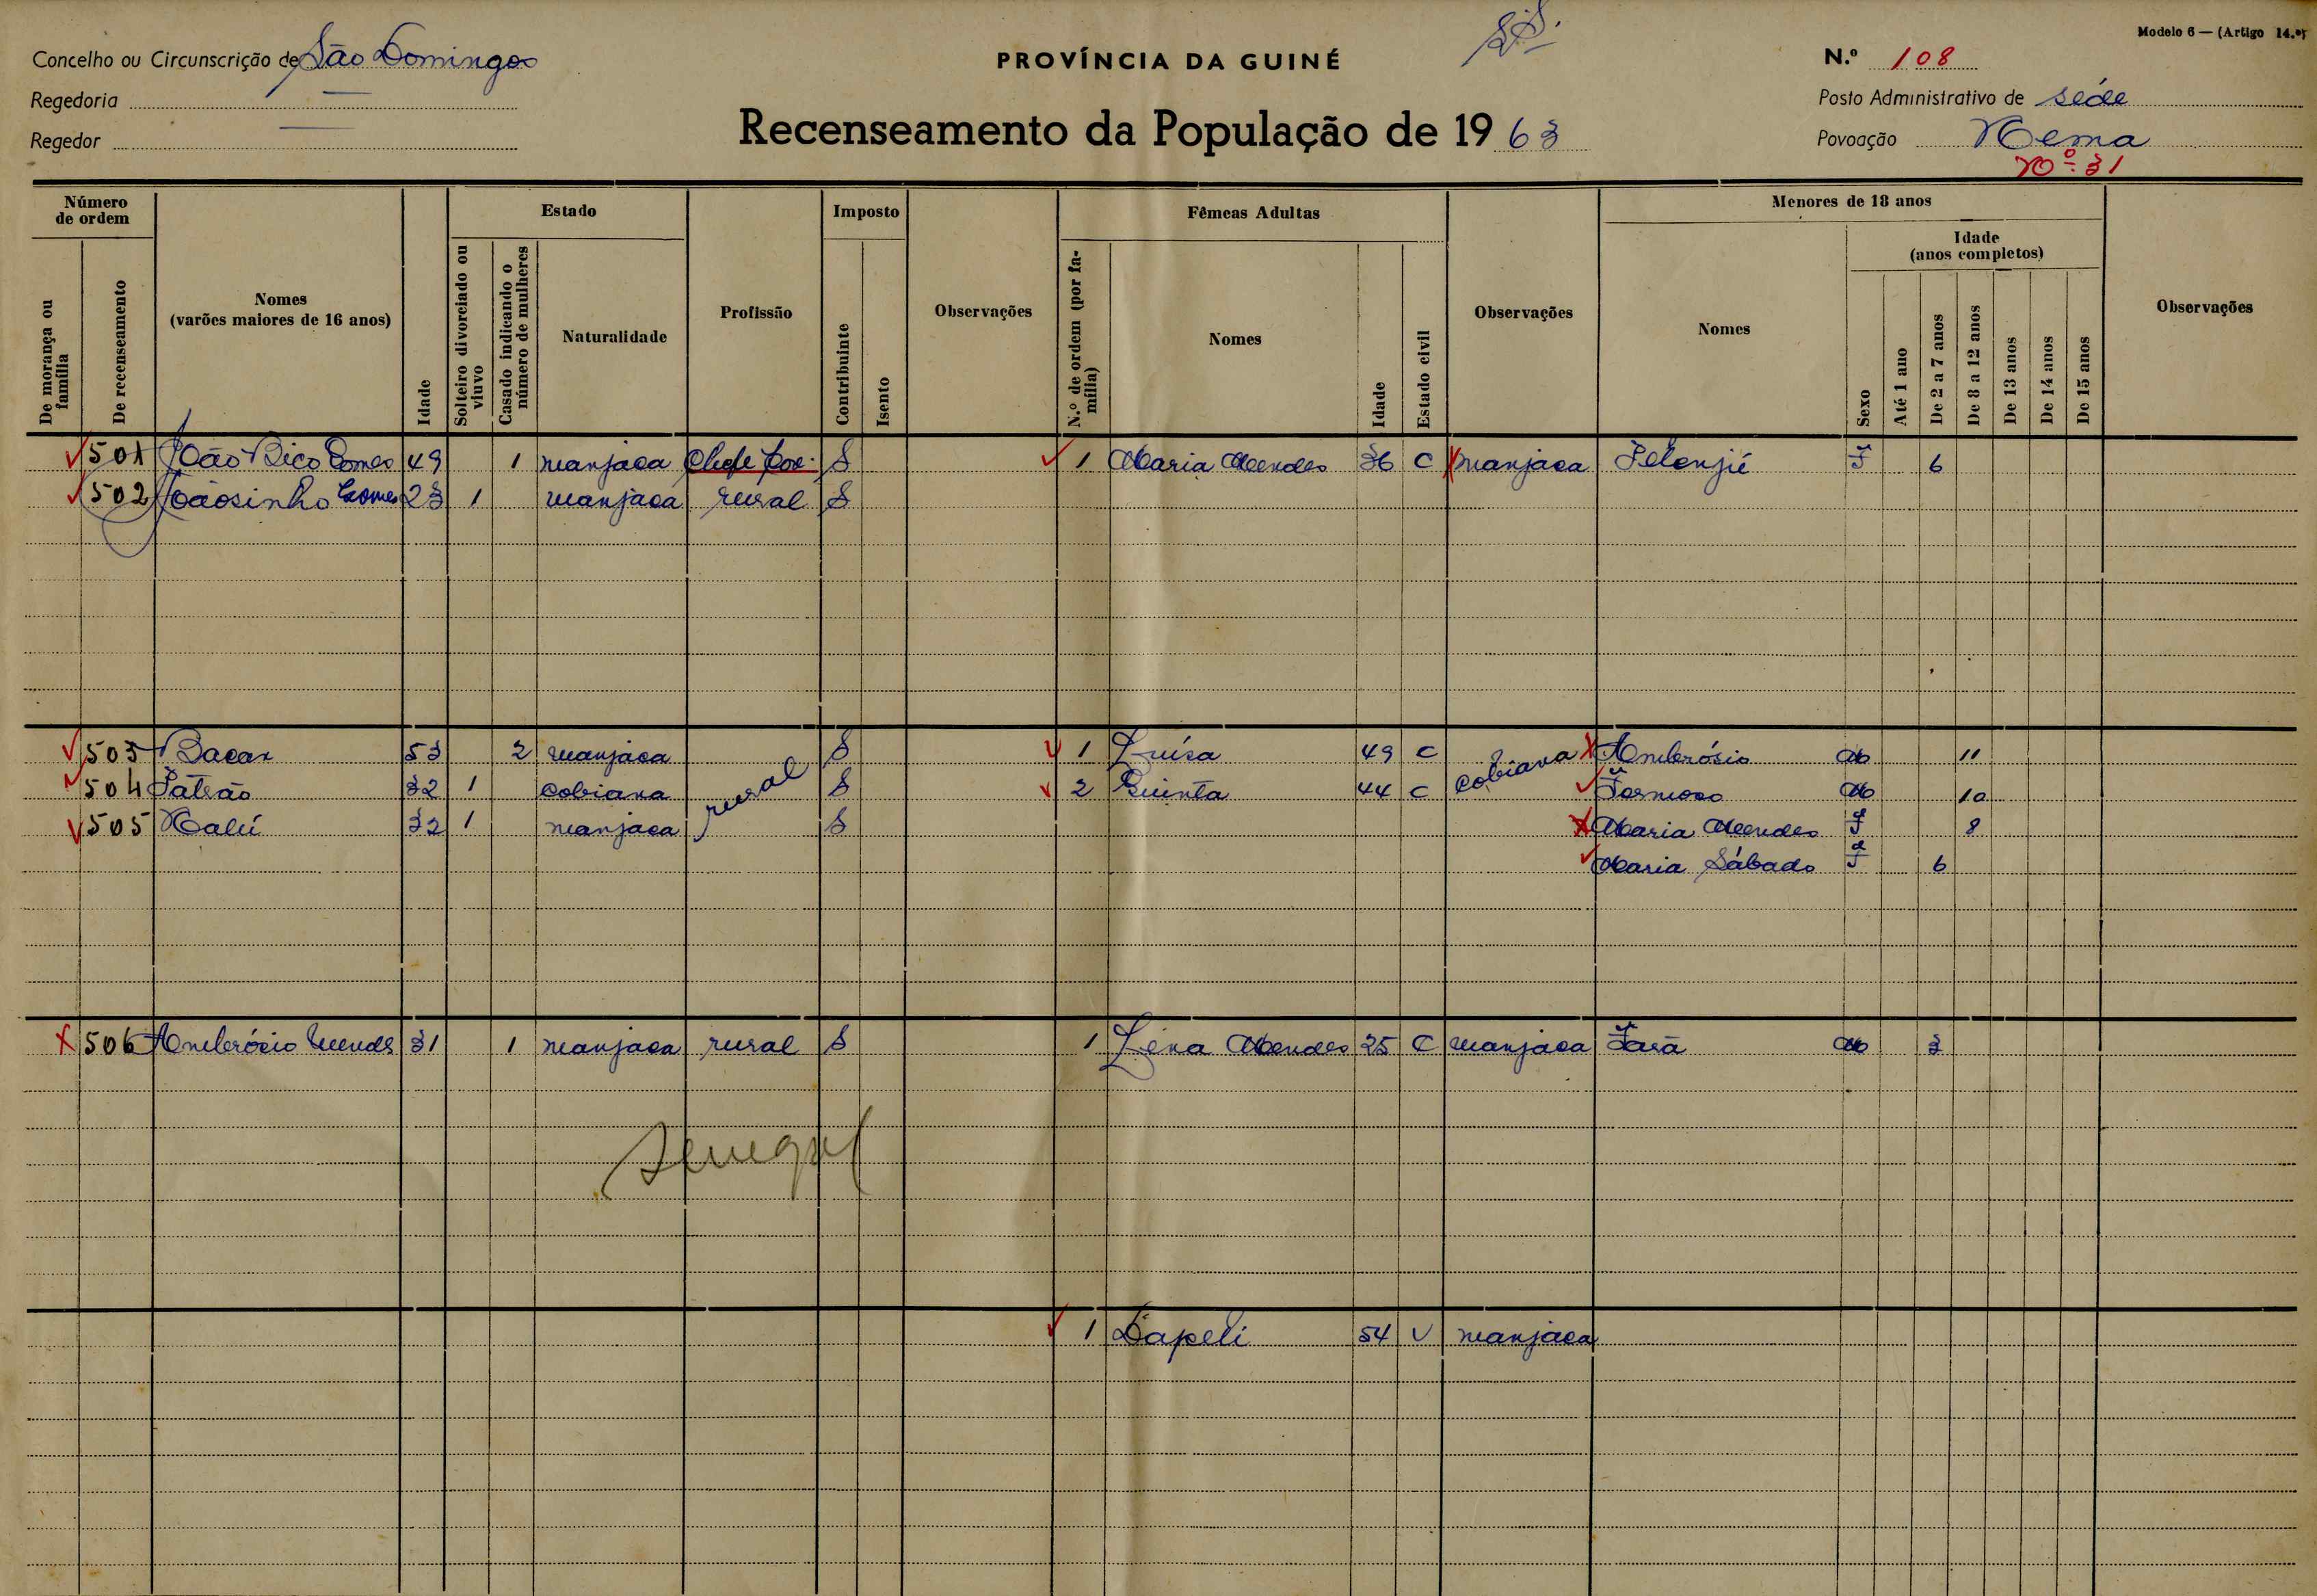 Modelo 6 — (Artigo 14.º)
Concelho ou Circunscrição de São Domingos
PROVÍNCIA DA GUINÉ
N.º 108
Regedoria —
Posto Administrativo de séde
Regedor —
Recenseamento da População de 1963
Povoação Nema
Nº 31
Número de ordem
De morança ou família
De recenseamento
Nomes (varões maiores de 16 anos)
Idade
Estado
Solteiro divorciado ou viuvo
Casado indicando o número de mulheres
Naturalidade
Profissão
Imposto
Contribuinte
Isento
Observações
Fêmeas Adultas
N.º de ordem (por família)
Nomes
Idade
Estado civil
Observações
Menores de 18 anos
Nomes
Idade (anos completos)
Sexo
Até 1 ano
De 2 a 7 anos
De 8 a 12 anos
De 13 anos
De 14 anos
De 15 anos
Observações
501 João Bico Gomes 49 1 manjaca Chefe S 1 Maria Mendes 36 C manjaca F 6
502 Joãosinho Gomes 23 1 manjaca rural S
503 Bacar 53 2 manjaca rural S 1 Luísa 49 C cobiana Ambrósio M 11
504 Patrão 32 1 cobiana S 2 Quinta 44 C Formoso M 10
505 Nalú 32 1 manjaca S Maria Mendes F 8
Maria Sábado F 6
506 Ambrósio Mends 31 1 manjaca rural S 1 Lena Mendes 25 C manjaca M 3
Senegal
1 Dapeli 54 V manjaca